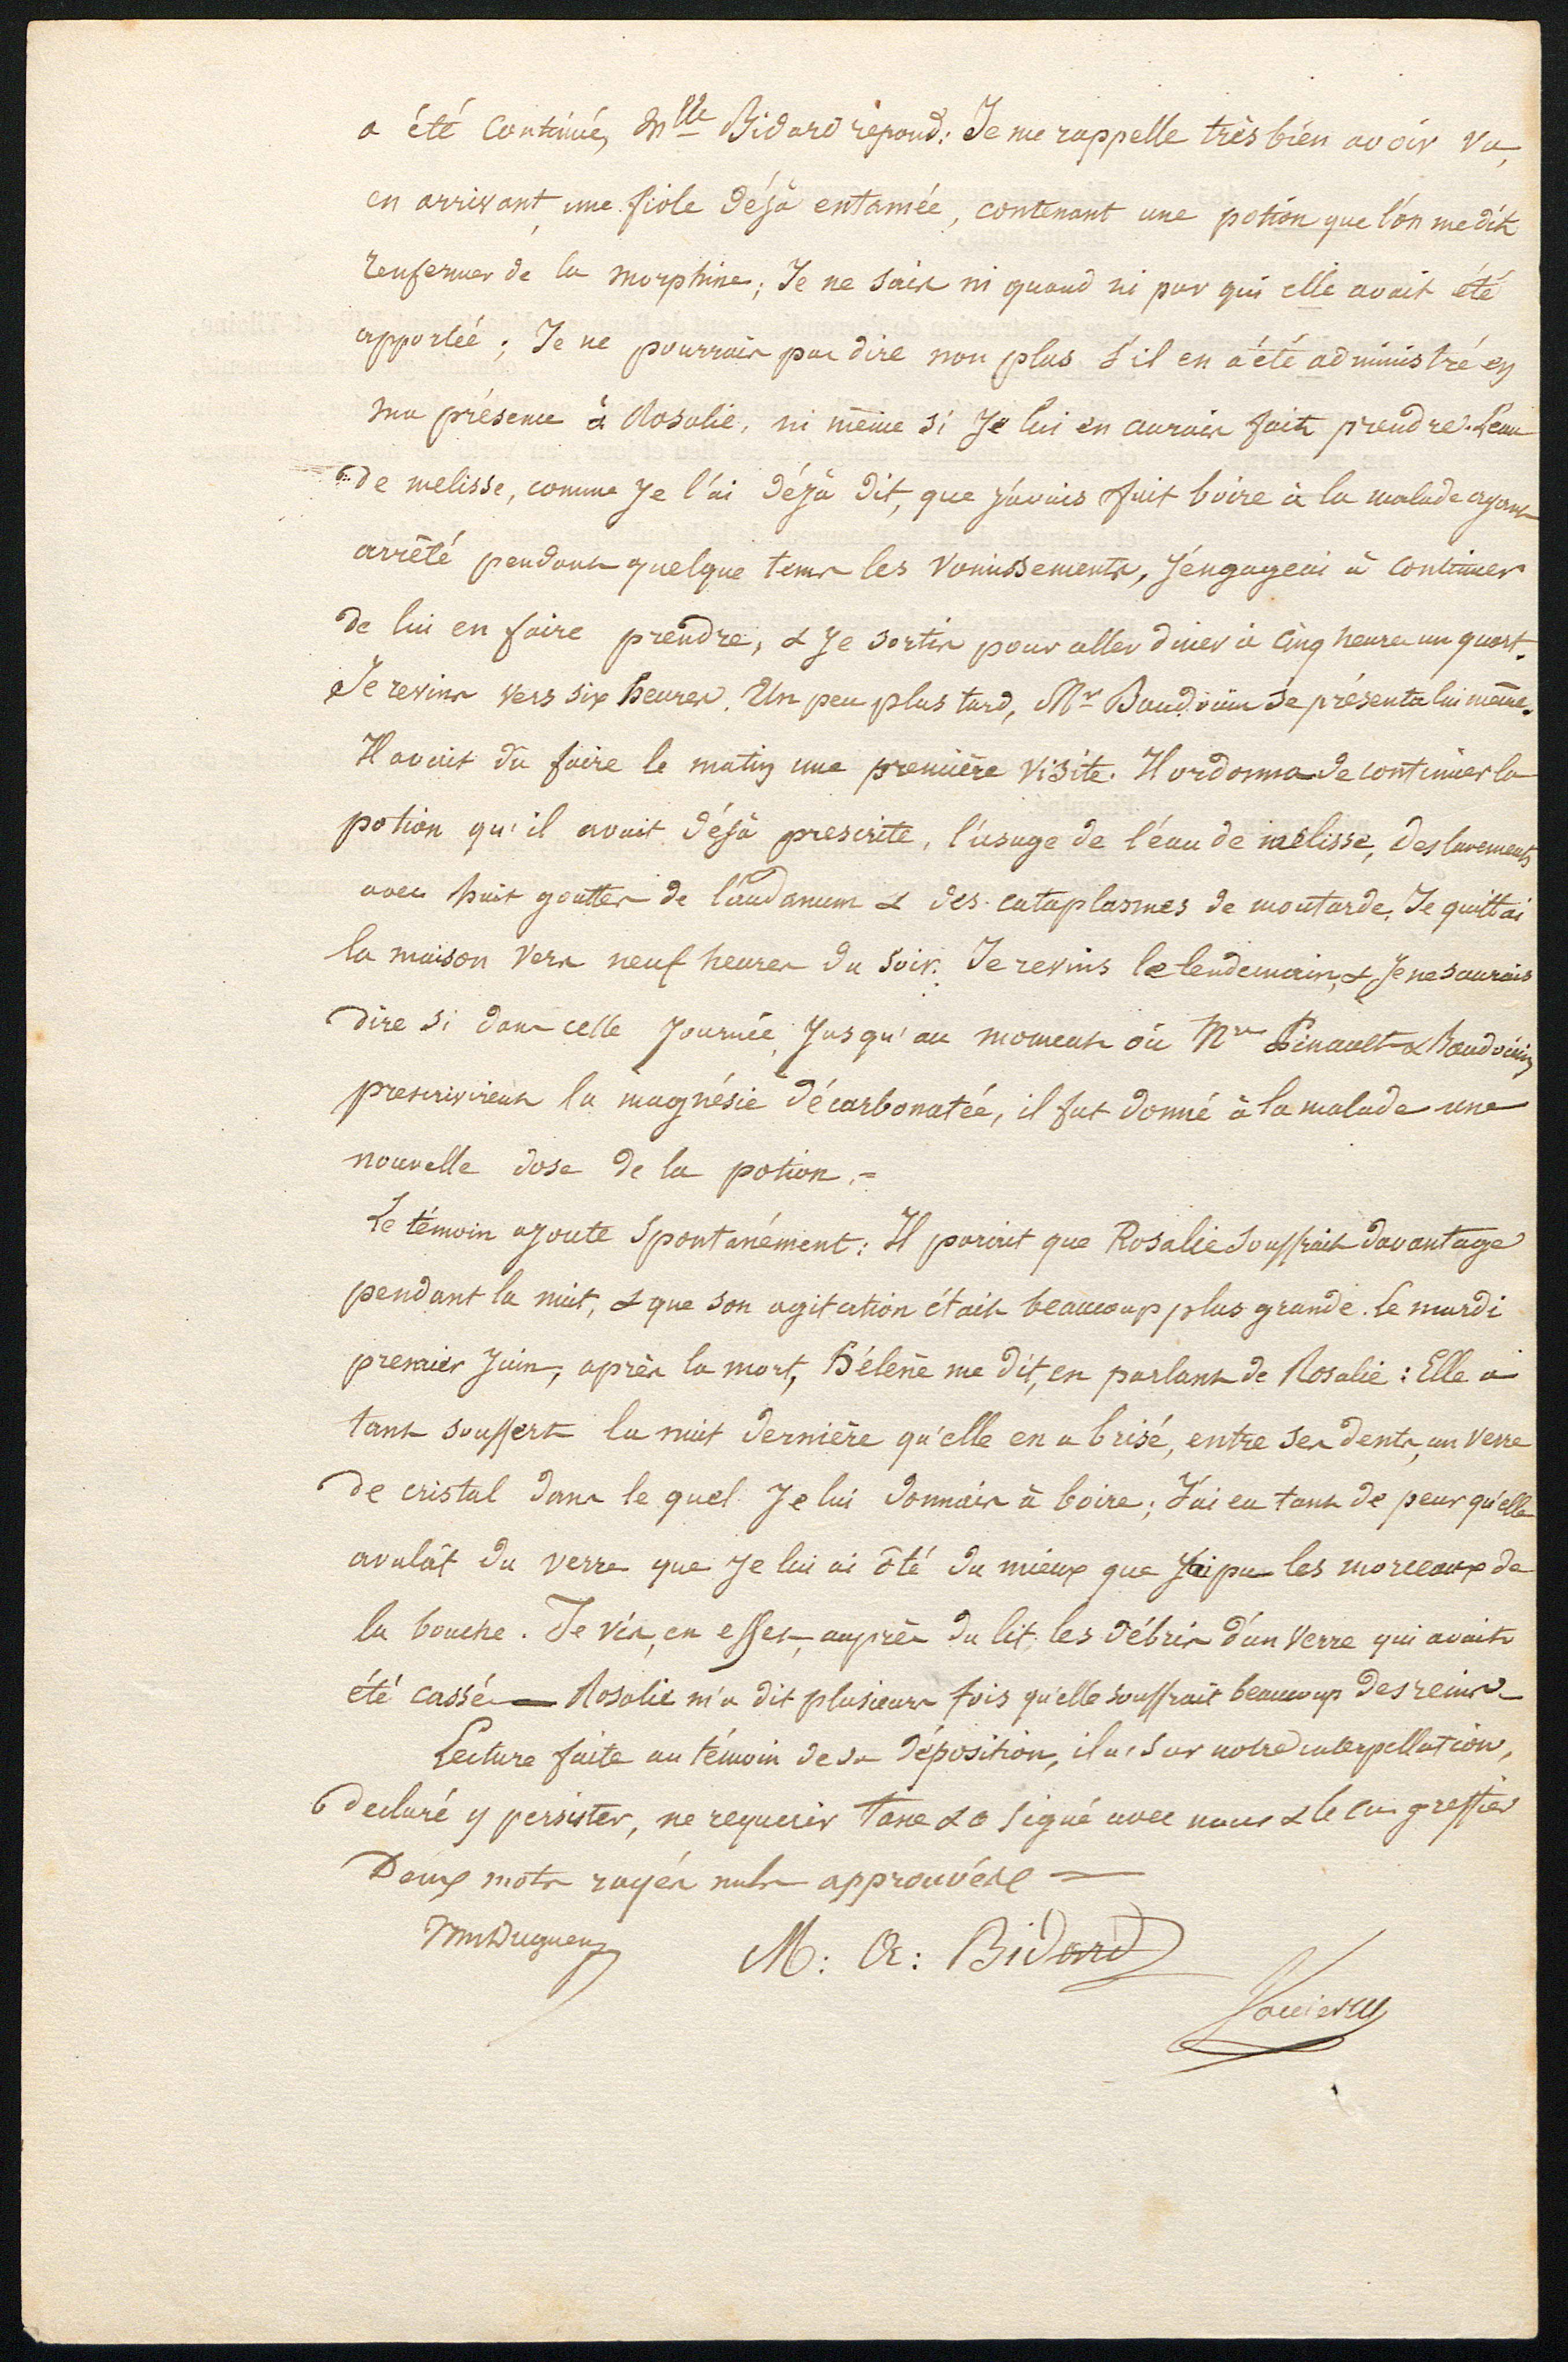 a été continué, M<sup>lle</sup> Bidard répond: Je me rappelle très bien avoir vu,
en arrivant, une fiole déjà entamée, contenant une potion que l'on me dit
renfermer de la morphine; Je ne sais ni quand ni par qui elle avait été
apportée; Je ne pourrais pas dire non plus s'il en a été administré en
ma présence à Rosalie, ni même si Je lui en aurais fait prendre. L'eau
de melisse, comme Je l'ai déjà dit, que J'avais fait boire à la malade ayant
arrêté pendant quelque tems les vomissements, J'engageai à continuer
de lui en faire prendre, & Je sortis pour aller diner à cinq heures un quart.
Je revins vers six heures. Un peu plus tard, M<sup>r</sup> Baudouin se présenta lui même.
Il avait dû faire le matin une première visite. Il ordonna de continuer la
potion qu'il avait déjà prescrite, l'usage de l'eau de mélisse, des lavements
avec huit gouttes de laudanum & des cataplasmes de moutarde. Je quittai
la maison vers neuf heures du soir. Je revins le lendemain, & Je ne saurais
dire si dans cette Journée, Jusqu'au moment où M<sup>rs</sup> Pinault & Baudouin
prescrivirent la magnésie décarbonatée, il fut donné à la malade une
nouvelle dose de la potion. =
Le témoin ajoute spontanément: Il parait que Rosalie souffrait davantage
pendant la nuit, & que son agitation était beaucoup plus grande. Le mardi
premier Juin, après la mort, Hélène me dit, en parlant de Rosalie: Elle a
tant souffert la nuit dernière qu'elle en a brisé, entre ses dents, un verre
de cristal dans le quel Je lui donnais à boire; J'ai eu tant de peur qu'elle
avalât du verre que Je lui ai ôté du mieux que J'ai pu les morceaux de
la bouche. Je vis, en effet, auprès du lit, les débris d'un verre qui avait
été cassé — Rosalie m'a dit plusieurs fois qu'elle souffrait beaucoup des reins.
Lecture faite au témoin de sa déposition, il a, sur notre interpellation,
declaré y persister, ne requerir taxe & a signé avec nous & le greffier
Deux mots rayés nuls approuvés
M: A: Bidard